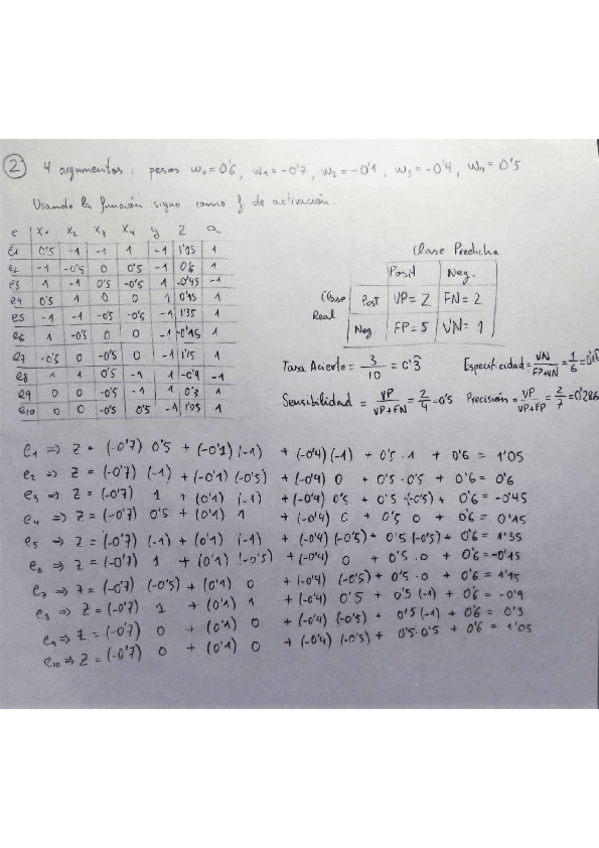 2 4 argumentos: pesos w₀=0'6, w₁=-0'7, w₂=-0'1, w₃=-0'4, w₄=0'5
Usando la función signo como f de activación.
e x₁ x₂ x₃ x₄ y z a
e1 0'5 -1 -1 1 -1 1'15 1
e2 -1 -0'5 0 0'5 -1 0'6 1
e3 1 -1 0'5 -0'5 1 -0'45 -1
e4 0'5 1 0 0 1 0'15 1
e5 -1 -1 -0'5 -0'5 -1 1'35 1
e6 1 -0'5 0 0 -1 -0'15 -1
e7 -0'5 0 -0'5 0 -1 1'15 1
e8 1 1 0'5 -1 1 -0'9 -1
e9 0 0 -0'5 -1 1 0'3 1
e10 0 0 -0'5 0'5 -1 1'05 1
Clase Predicha
Posit Neg.
Clase Real
Post VP=2 FN=2
Neg FP=5 VN=1
Tasa Acierto = 3/10 = 0'3
Especificidad = VN/FP+VN = 1/6
Sensibilidad = VP/VP+FN = 2/4 = 0'5
Precisión = VP/VP+FP = 2/7 = 0'286
e1 => z = (-0'7) 0'5 + (-0'1) (-1) + (-0'4) (-1) + 0'5 · 1 + 0'6 = 1'05
e2 => z = (-0'7) (-1) + (-0'1) (-0'5) + (-0'4) 0 + 0'5 · 0'5 + 0'6 = 0'6
e3 => z = (-0'7) 1 + (0'1) (-1) + (-0'4) 0'5 + 0'5 (-0'5) + 0'6 = -0'45
e4 => z = (-0'7) 0'5 + (0'1) 1 + (-0'4) 0 + 0'5 0 + 0'6 = 0'15
e5 => z = (-0'7) (-1) + (0'1) (-1) + (-0'4) (-0'5) + 0'5 (-0'5) + 0'6 = 1'35
e6 => z = (-0'7) 1 + (0'1) (-0'5) + (-0'4) 0 + 0'5 · 0 + 0'6 = -0'15
e7 => z = (-0'7) (-0'5) + (0'1) 0 + (-0'4) (-0'5) + 0'5 · 0 + 0'6 = 1'15
e8 => z = (-0'7) 1 + (0'1) 1 + (-0'4) 0'5 + 0'5 (-1) + 0'6 = -0'9
e9 => z = (-0'7) 0 + (0'1) 0 + (-0'4) (-0'5) + 0'5 (-1) + 0'6 = 0'3
e10 => z = (-0'7) 0 + (0'1) 0 + (-0'4) (-0'5) + 0'5 · 0'5 + 0'6 = 1'05